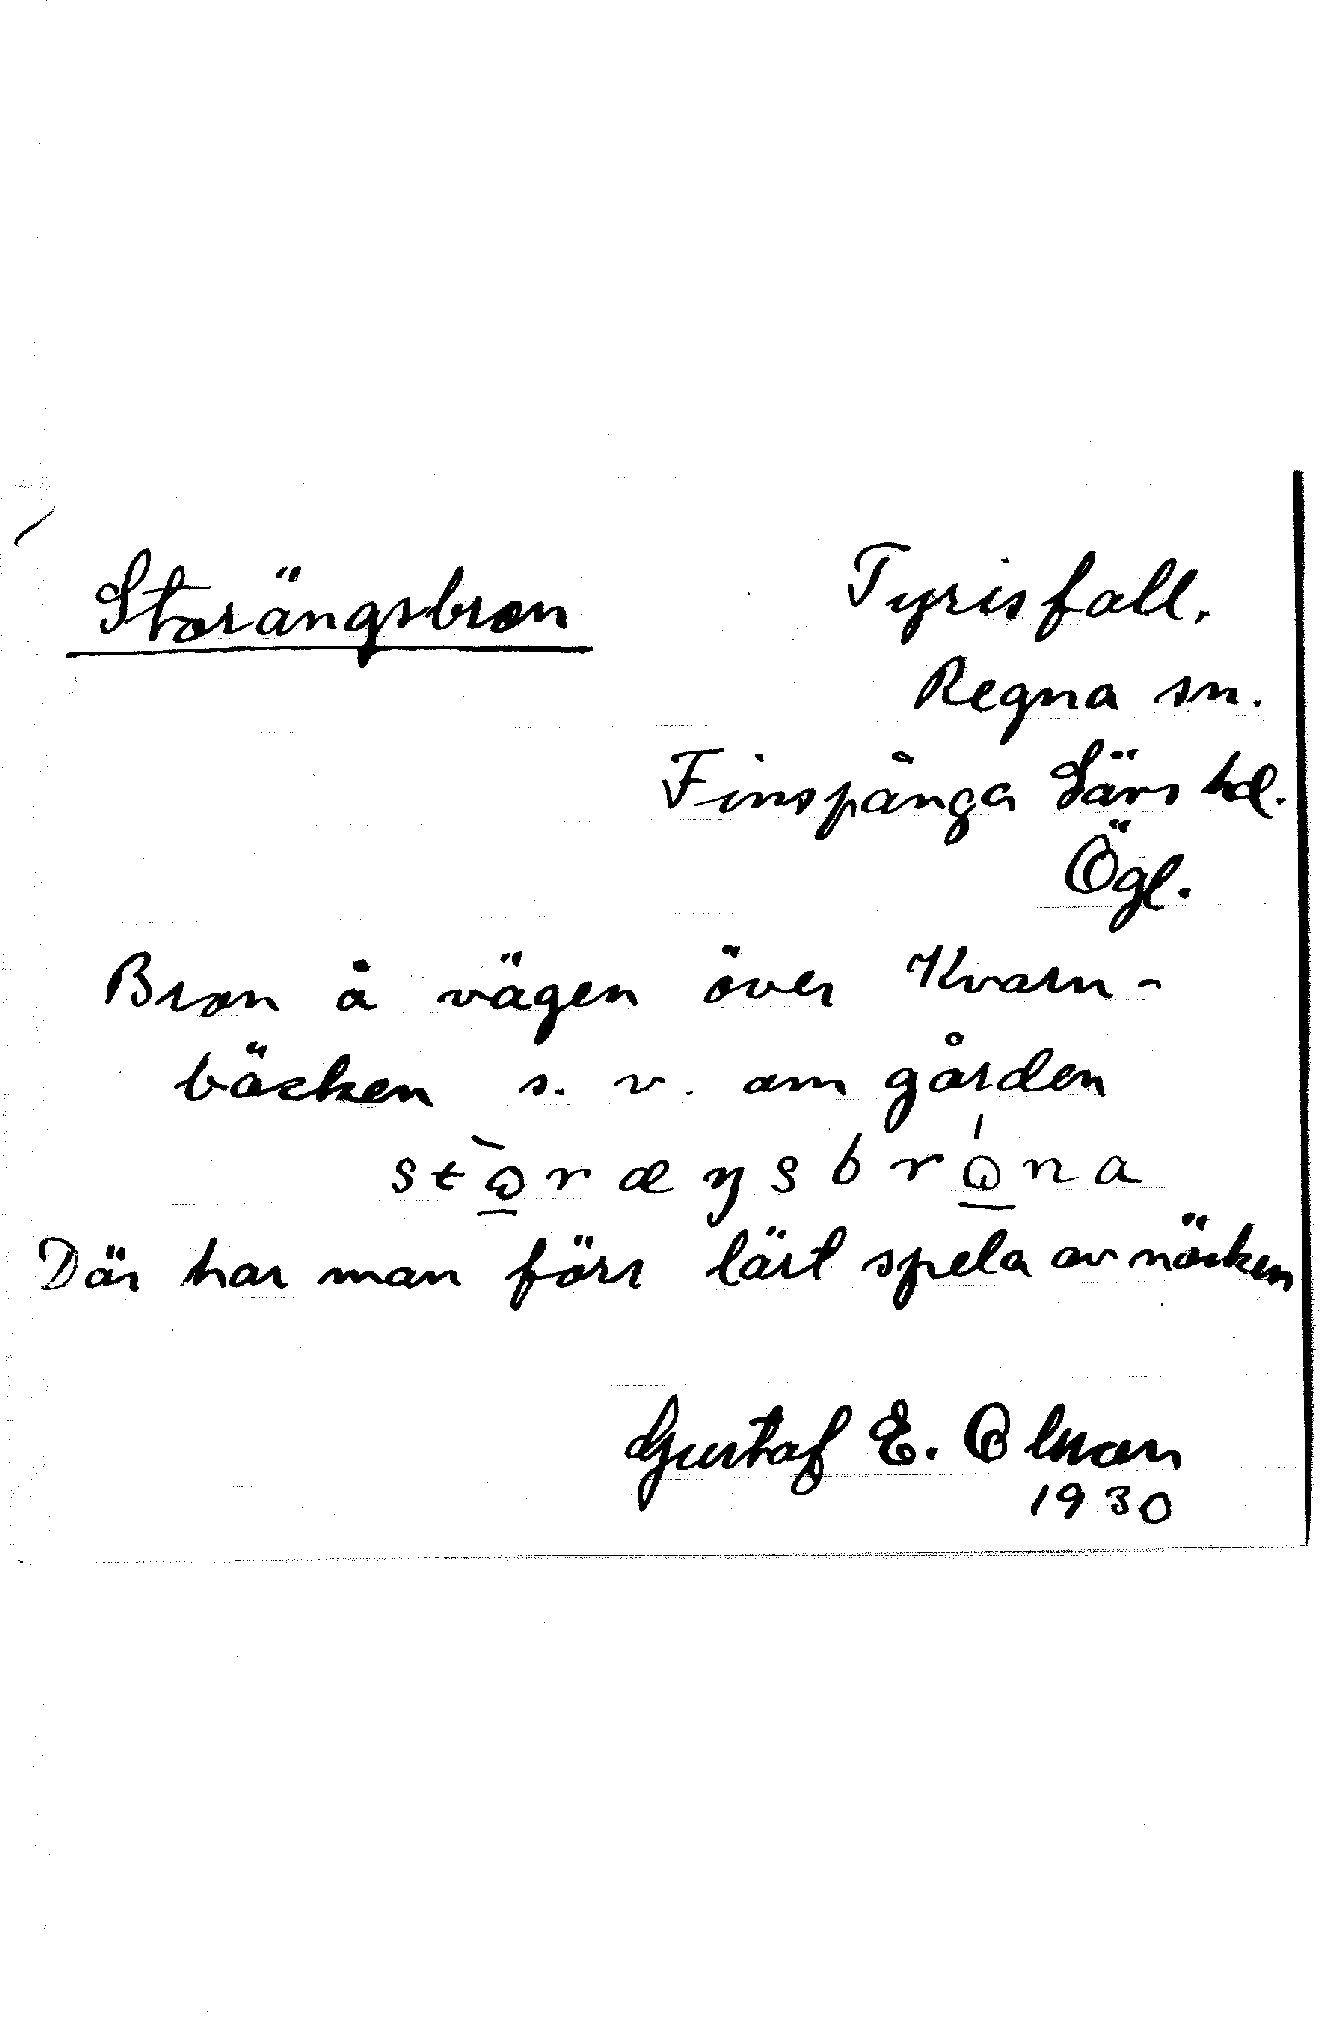 Storängsbron
Tyrisfall.
Regna sn.
Finspånga Läns hd.
Ögl.
Bron å vägen över Kvarn-
bäcken s. v. om gården
stὼ̲ræŋsbrώ̲na
Där har man förr lärt spela av näcken
Gustaf E. Olson
1930